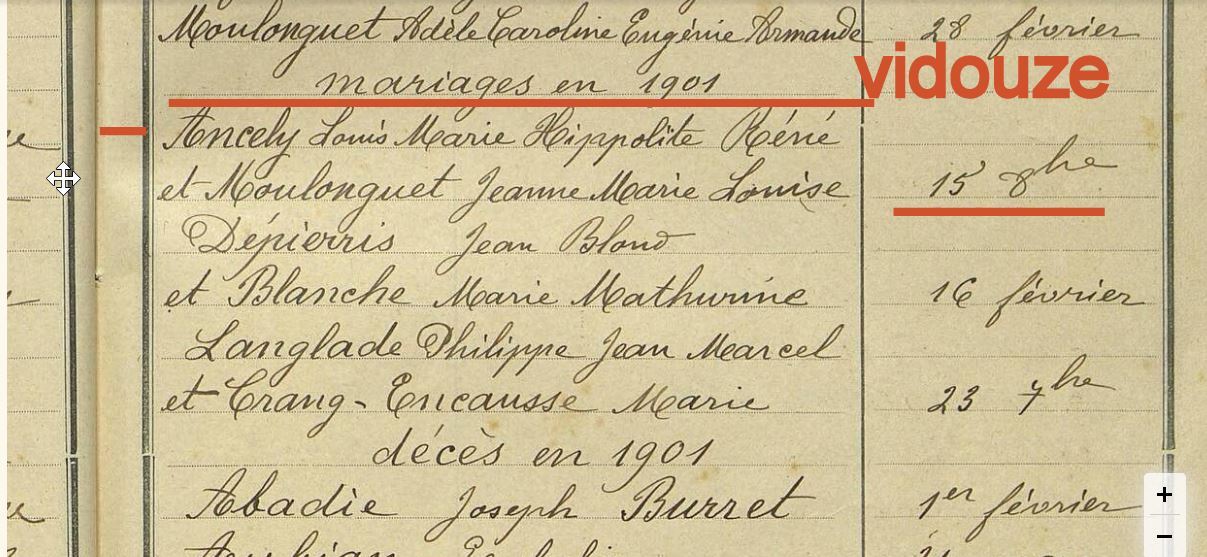 Moulonguet Adèle Caroline Eugénie Armande 28 février
vidouze
mariages en 1901
Ancely Louis Marie Hippolite Réné
et Moulonguet Jeanne Marie Louise 15 8bre
Dépierris Jean Blond
et Blanche Marie Mathurine 16 février
Langlade Philippe Jean Marcel
et Crang-Encausse Marie 23 7bre
décès en 1901
Abadie Joseph Burret 1er février
+
-